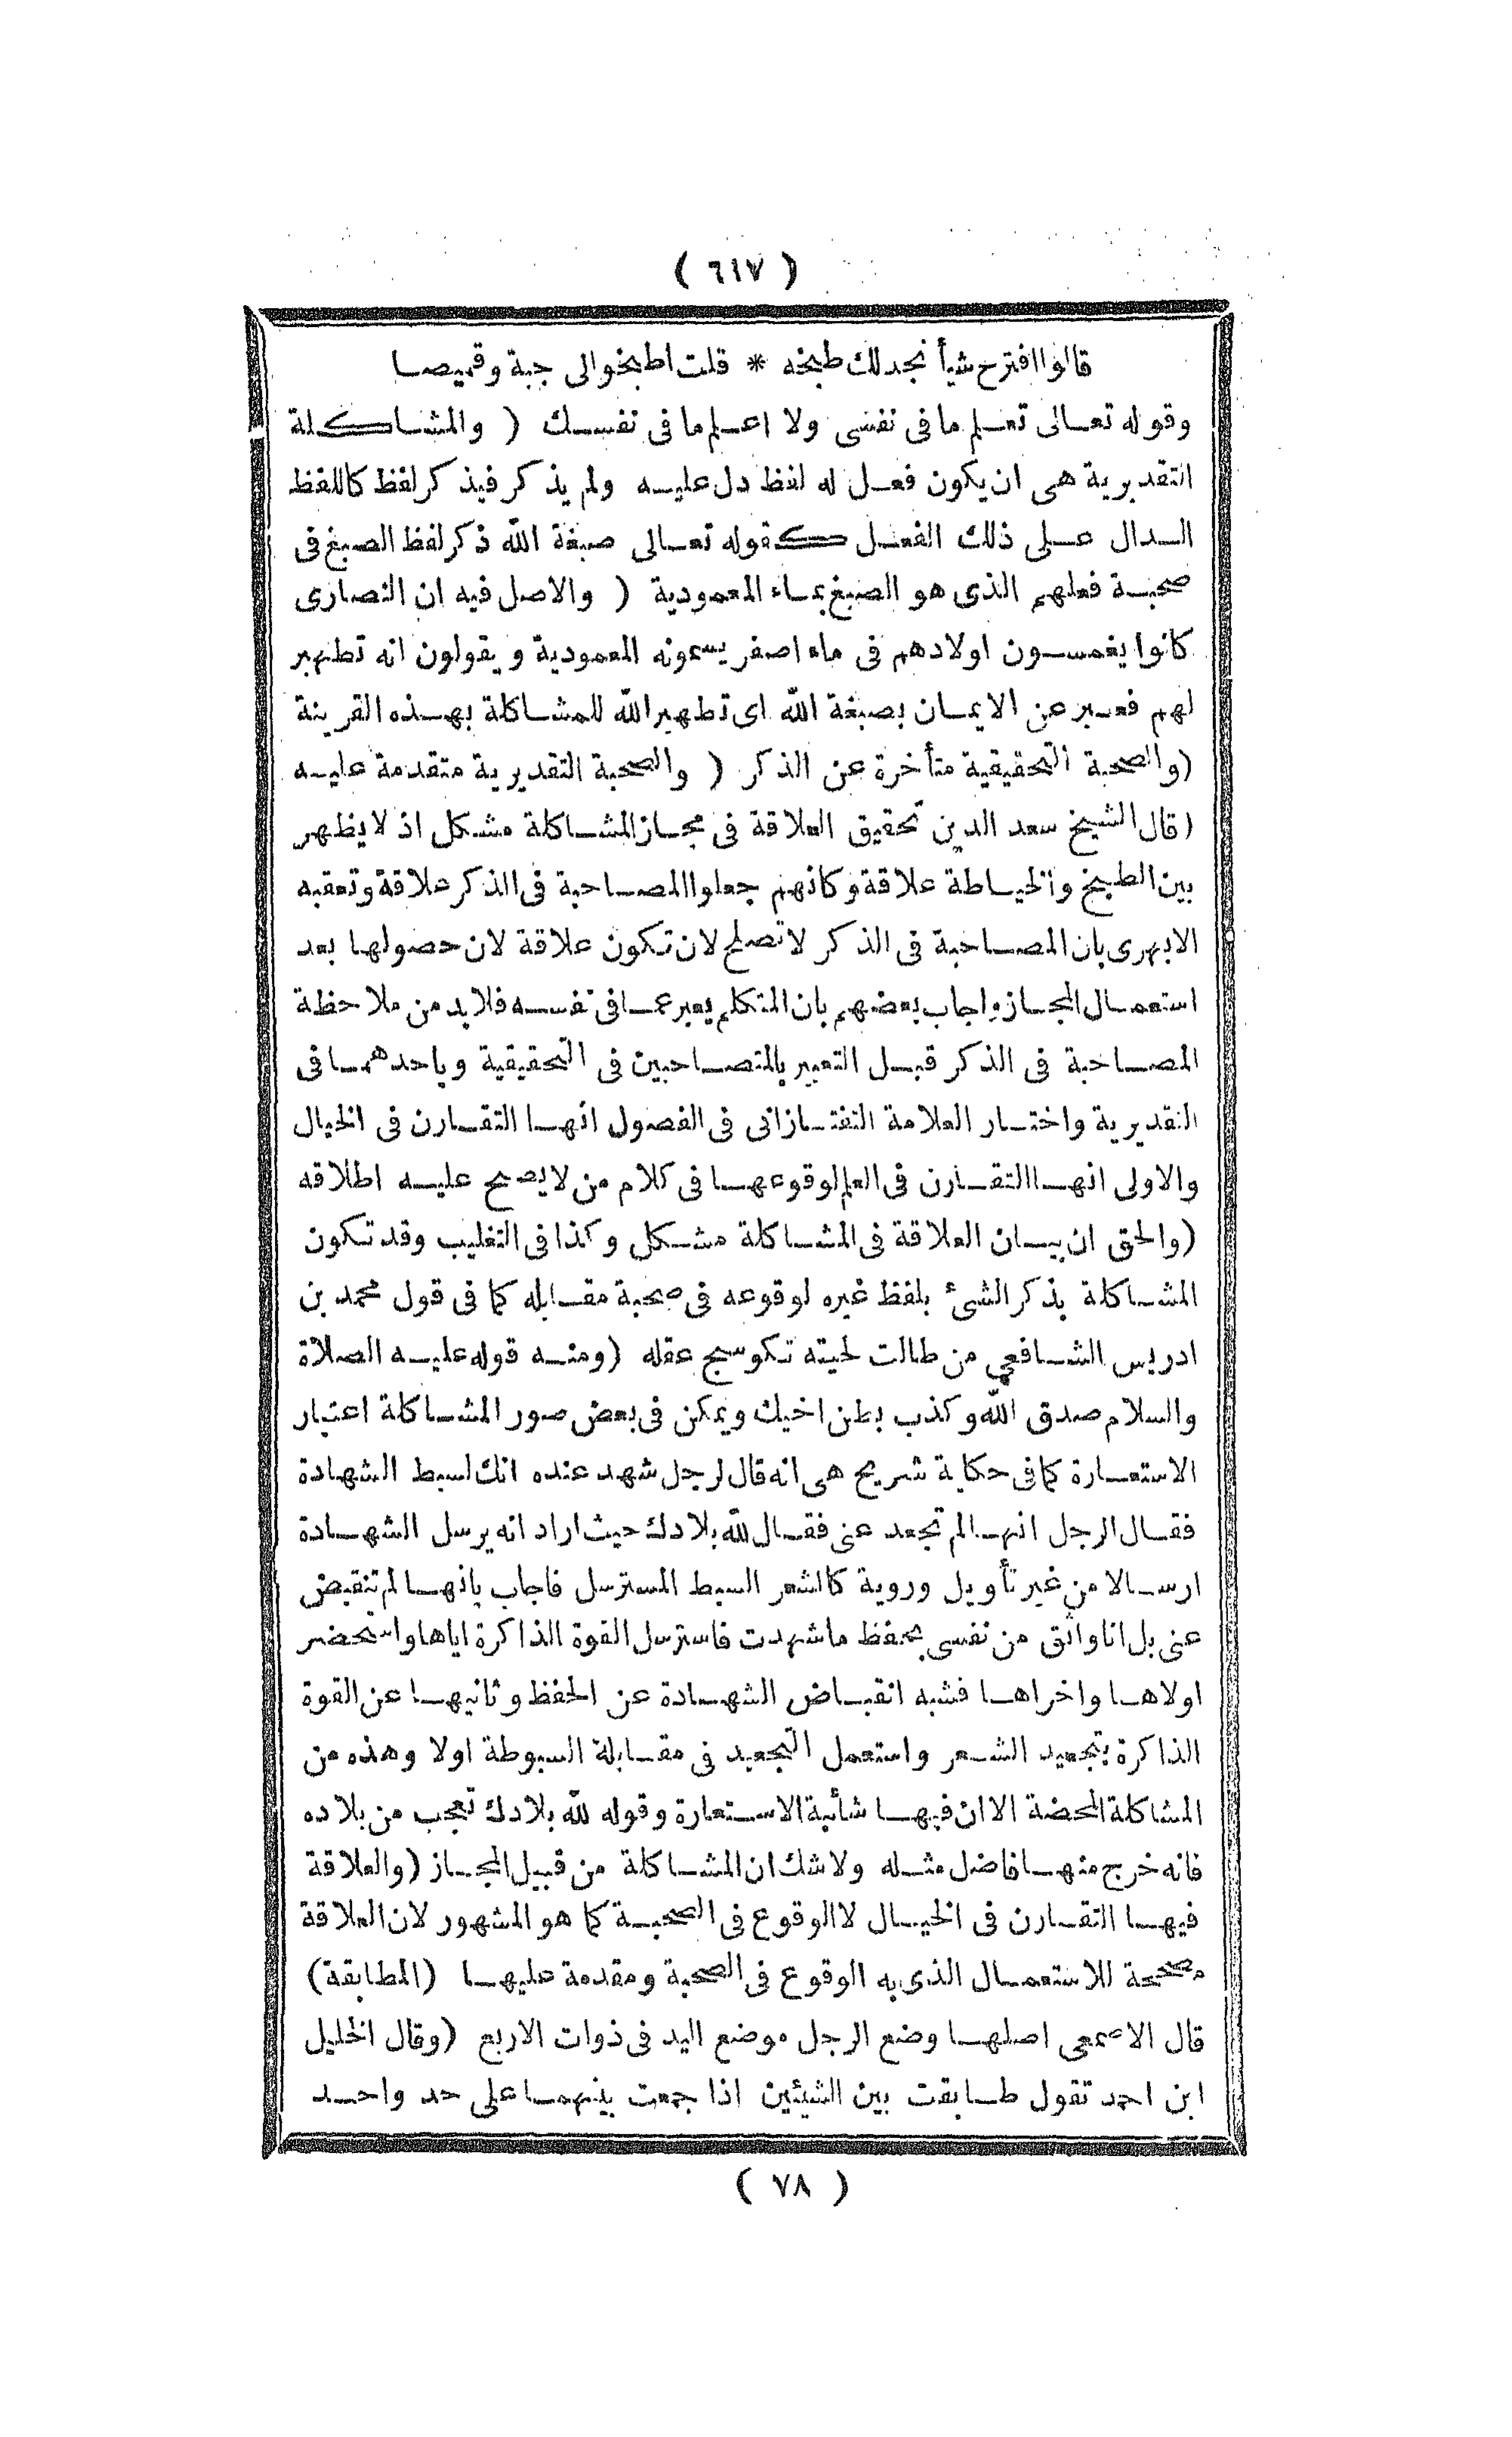 ( ٦١٧ )
قالوا اقترح شيأ نجد لك طبخه * قلت اطبخوا لى جبة وقميصا
وقوله تعالى تعلم ما فى نفسى ولا اعلم ما فى نفسك ( والمشاكلة
التقديرية هى ان يكون فعل له لفظ دل عليه ولم يذكر فيذكر لفظ كاللفظ
الدال على ذلك الفعل كقوله تعالى صبغة الله ذكر لفظ الصبغ فى
صحبة فعلهم الذى هو الصبغ بماء المعمودية ( والاصل فيه ان النصارى
كانوا يغمسون اولادهم فى ماء اصفر يسمونه المعمودية ويقولون انه تطهير
لهم فعبر عن الايمان بصبغة الله اى تطهير الله للمشاكلة بهذه القرينة
(والصحبة التحقيقية متأخرة عن الذكر ( والصحبة التقديرية متقدمة عليه
(قال الشيخ سعد الدين تحقيق العلاقة فى مجاز المشاكلة مشكل اذ لا يظهر
بين الطبخ والخياطة علاقة وكانهم جعلوا المصاحبة فى الذكر علاقة وتعقبه
الابهرى بان المصاحبة فى الذكر لا تصلح لان تكون علاقة لان حصولها بعد
استعمال المجاز واجاب بعضهم بان المتكلم يعبر عما فى نفسه فلا بد من ملاحظة
المصاحبة فى الذكر قبل التعبير بالمتصاحبين فى التحقيقية وباحدهما فى
التقديرية واختار العلامة التفتازانى فى الفصول انها التقارن فى الخيال
والاولى انها التقارن فى العلم لوقوعها فى كلام من لا يصح عليه اطلاقه
(والحق ان بيان العلاقة فى المشاكلة مشكل وكذا فى التغليب وقد تكون
المشاكلة بذكر الشئ بلفظ غيره لوقوعه فى صحبة مقابله كما فى قول محمد بن
ادريس الشافعى من طالت لحيته تكوسج عقله (ومنه قوله عليه الصلاة
والسلام صدق الله وكذب بطن اخيك ويمكن فى بعض صور المشاكلة اعتبار
الاستعارة كما فى حكاية شريح هى انه قال لرجل شهد عنده انك لسبط الشهادة
فقال الرجل انها لم تجعد عنى فقال لله بلادك حيث اراد انه يرسل الشهادة
ارسالا من غير تأويل وروية كالشعر السبط المسترسل فاجاب بانها لم تنقبض
عنى بل انا واثق من نفسى بحفظ ما شهدت فاسترسل القوة الذاكرة اياها واستحضر
اولاها واخراها فشبه انقباض الشهادة عن الحفظ وثانيها عن القوة
الذاكرة بتجعيد الشعر واستعمل التجعيد فى مقابلة السبوطة اولا وهذه من
المشاكلة المحضة الا ان فيها شائبة الاستعارة وقوله لله بلادك تعجب من بلاده
فانه خرج منها فاضل مثله ولا شك ان المشاكلة من قبيل المجاز (والعلاقة
فيها التقارن فى الخيال لا الوقوع فى الصحبة كما هو المشهور لان العلاقة
مصححة للاستعمال الذى به الوقوع فى الصحبة ومقدمة عليها (المطابقة)
قال الاصمعى اصلها وضع الرجل موضع اليد فى ذوات الاربع (وقال الخليل
ابن احمد تقول طابقت بين الشيئين اذا جمعت بينهما على حد واحد
( ٧٨ )